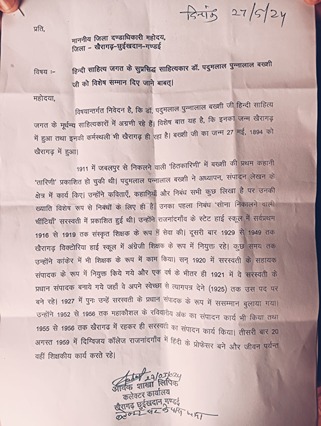 दिनांक 27/5/24
प्रति,
माननीय जिला दण्डाधिकारी महोदय,
जिला - खैरागढ़-छुईखदान-गण्डई
विषय :- हिन्दी साहित्य जगत के सुप्रसिद्ध साहित्यकार डॉ. पदुमलाल पुन्नालाल बख्शी
जी को विशेष सम्मान दिए जाने बाबत्।
महोदया,
विषयान्तर्गत निवेदन है, कि डॉ. पदुमलाल पुन्नालाल बख्शी जी हिन्दी साहित्य
जगत के मूर्धन्य साहित्यकारों में अग्रणी रहे है। विशेष बात यह है, कि इनका जन्म खैरागढ़
में हुआ तथा इनकी कर्मस्थली भी खैरागढ़ ही रहा है। बख्शी जी का जन्म 27 मई, 1894 को
खैरागढ़ में हुआ।
1911 में जबलपुर से निकलने वाली 'हितकारिणी' में बख्शी की प्रथम कहानी
'तारिणी' प्रकाशित हो चुकी थी। पदुमलाल पुन्नालाल बख्शी ने अध्यापन, संपादन लेखन के
क्षेत्र में कार्य किए। उन्होंने कविताएँ, कहानियाँ और निबंध सभी कुछ लिखा है पर उनकी
ख्याति विशेष रूप से निबंधों के लिए ही है। उनका पहला निबंध 'सोना निकालने वाली
चींटियाँ' सरस्वती में प्रकाशित हुई थी। उन्होंने राजनांदगाँव के स्टेट हाई स्कूल में सर्वप्रथम
1916 से 1919 तक संस्कृत शिक्षक के रूप में सेवा की। दूसरी बार 1929 से 1949 तक
खैरागढ़ विक्टोरिया हाई स्कूल में अंग्रेजी शिक्षक के रूप में नियुक्त रहे। कुछ समय तक
उन्होंने कांकेर में भी शिक्षक के रूप में काम किया। सन् 1920 में सरस्वती के सहायक
संपादक के रूप में नियुक्त किये गये और एक वर्ष के भीतर ही 1921 में वे सरस्वती के
प्रधान संपादक बनाये गये जहाँ वे अपने स्वेच्छा से त्यागपत्र देने (1925) तक उस पद पर
बने रहे। 1927 में पुनः उन्हें सरस्वती के प्रधान संपादक के रूप में ससम्मान बुलाया गया।
उन्होंने 1952 से 1956 तक महाकौशल के रविवारीय अंक का संपादन कार्य भी किया तथा
1955 से 1956 तक खैरागढ़ में रहकर ही सरस्वती का संपादन कार्य किया। तीसरी बार 20
अगस्त 1959 में दिग्विजय कॉलेज राजनांदगाँव में हिंदी के प्रोफेसर बने और जीवन पर्यन्त
वहीं शिक्षकीय कार्य करते रहे।
आवक शाखा लिपिक
कलेक्टर कार्यालय
खैरागढ़ छुईखदान गण्डई